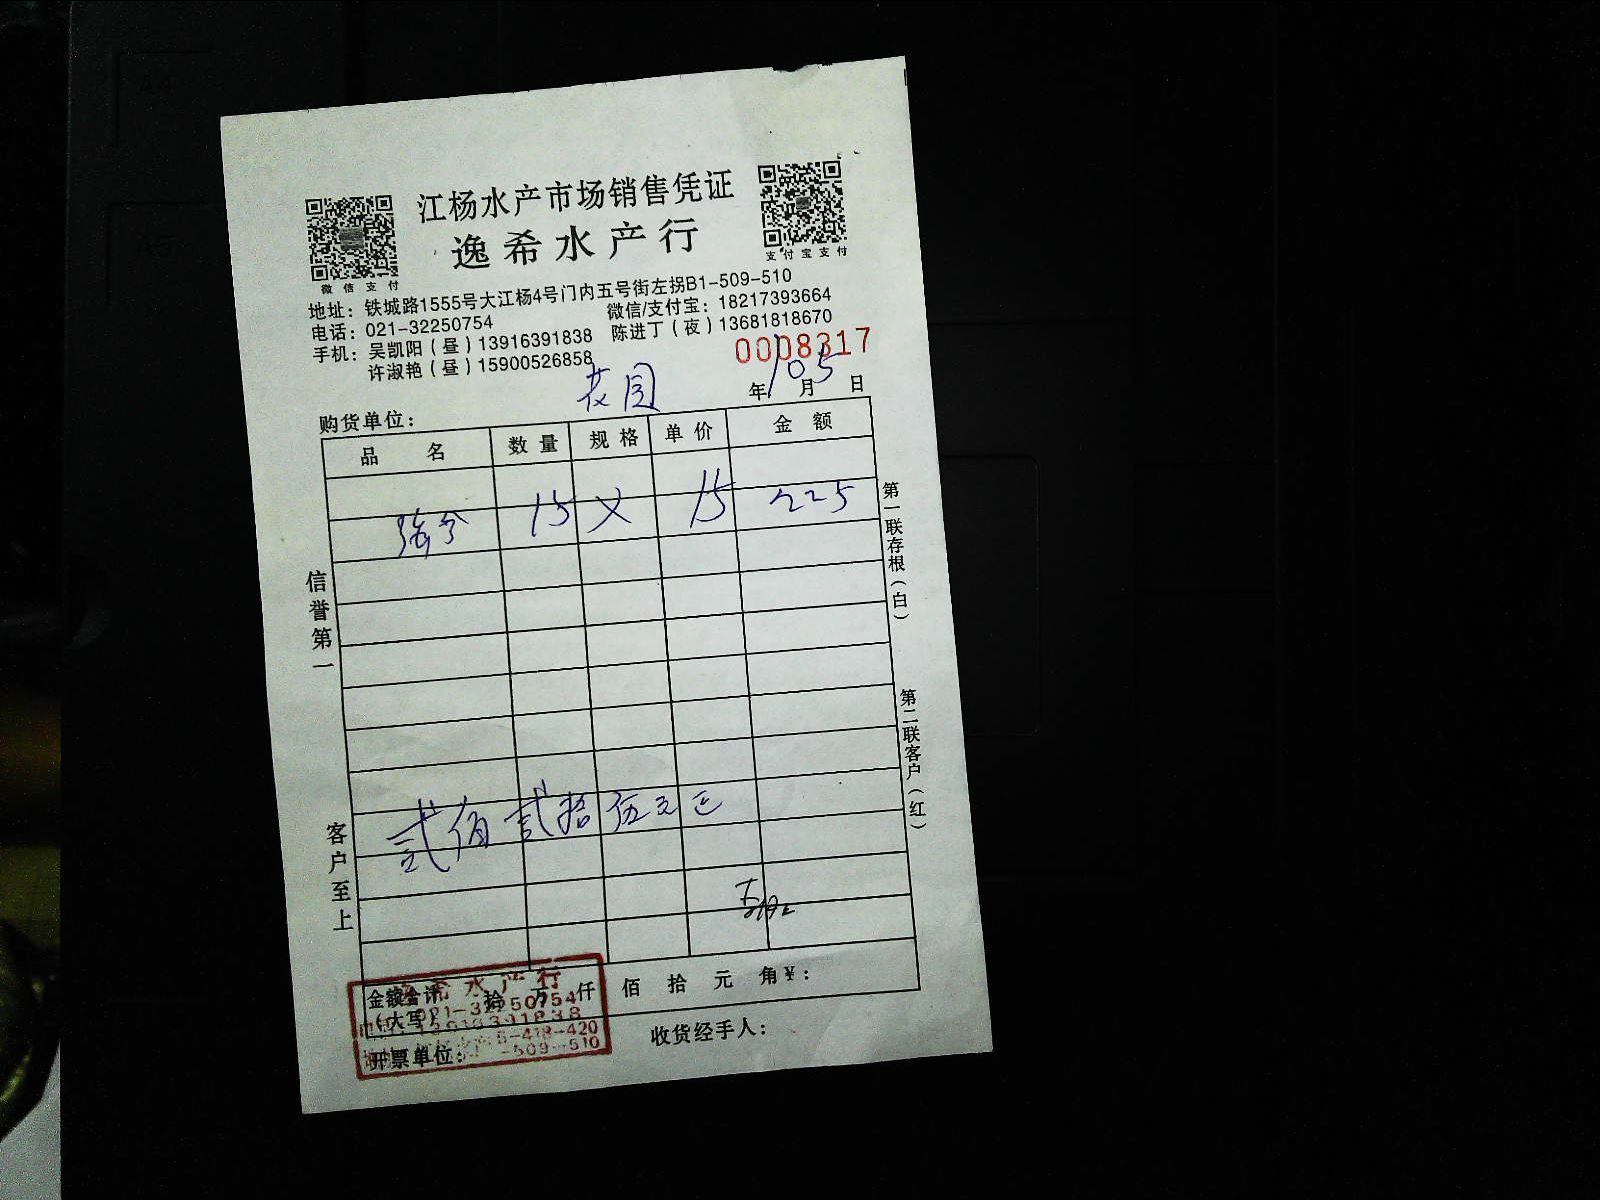 江杨水产市场销售凭证
逸希水产行
微信支付
支付宝支付
地址：铁城路1555号大江杨4号门内五号街左拐B1-509-510
电话：021-32250754 微信/支付宝：18217393664
手机：吴凯阳（昼）13916391838 陈进丁（夜）13681818670
许淑艳（昼）15900526858
0008317
花园
年10月5日
购货单位：
品名 数量 规格 单价 金额
15 × 15 225
贰佰贰拾伍元正
信誉第一
客户至上
第一联存根（白）
第二联客户（红）
金额合计 拾 万 仟 佰 拾 元 角 ¥：
（大写）
开票单位： 收货经手人：
希水产行
021-32250754
13916391838
-418-420
-509-510